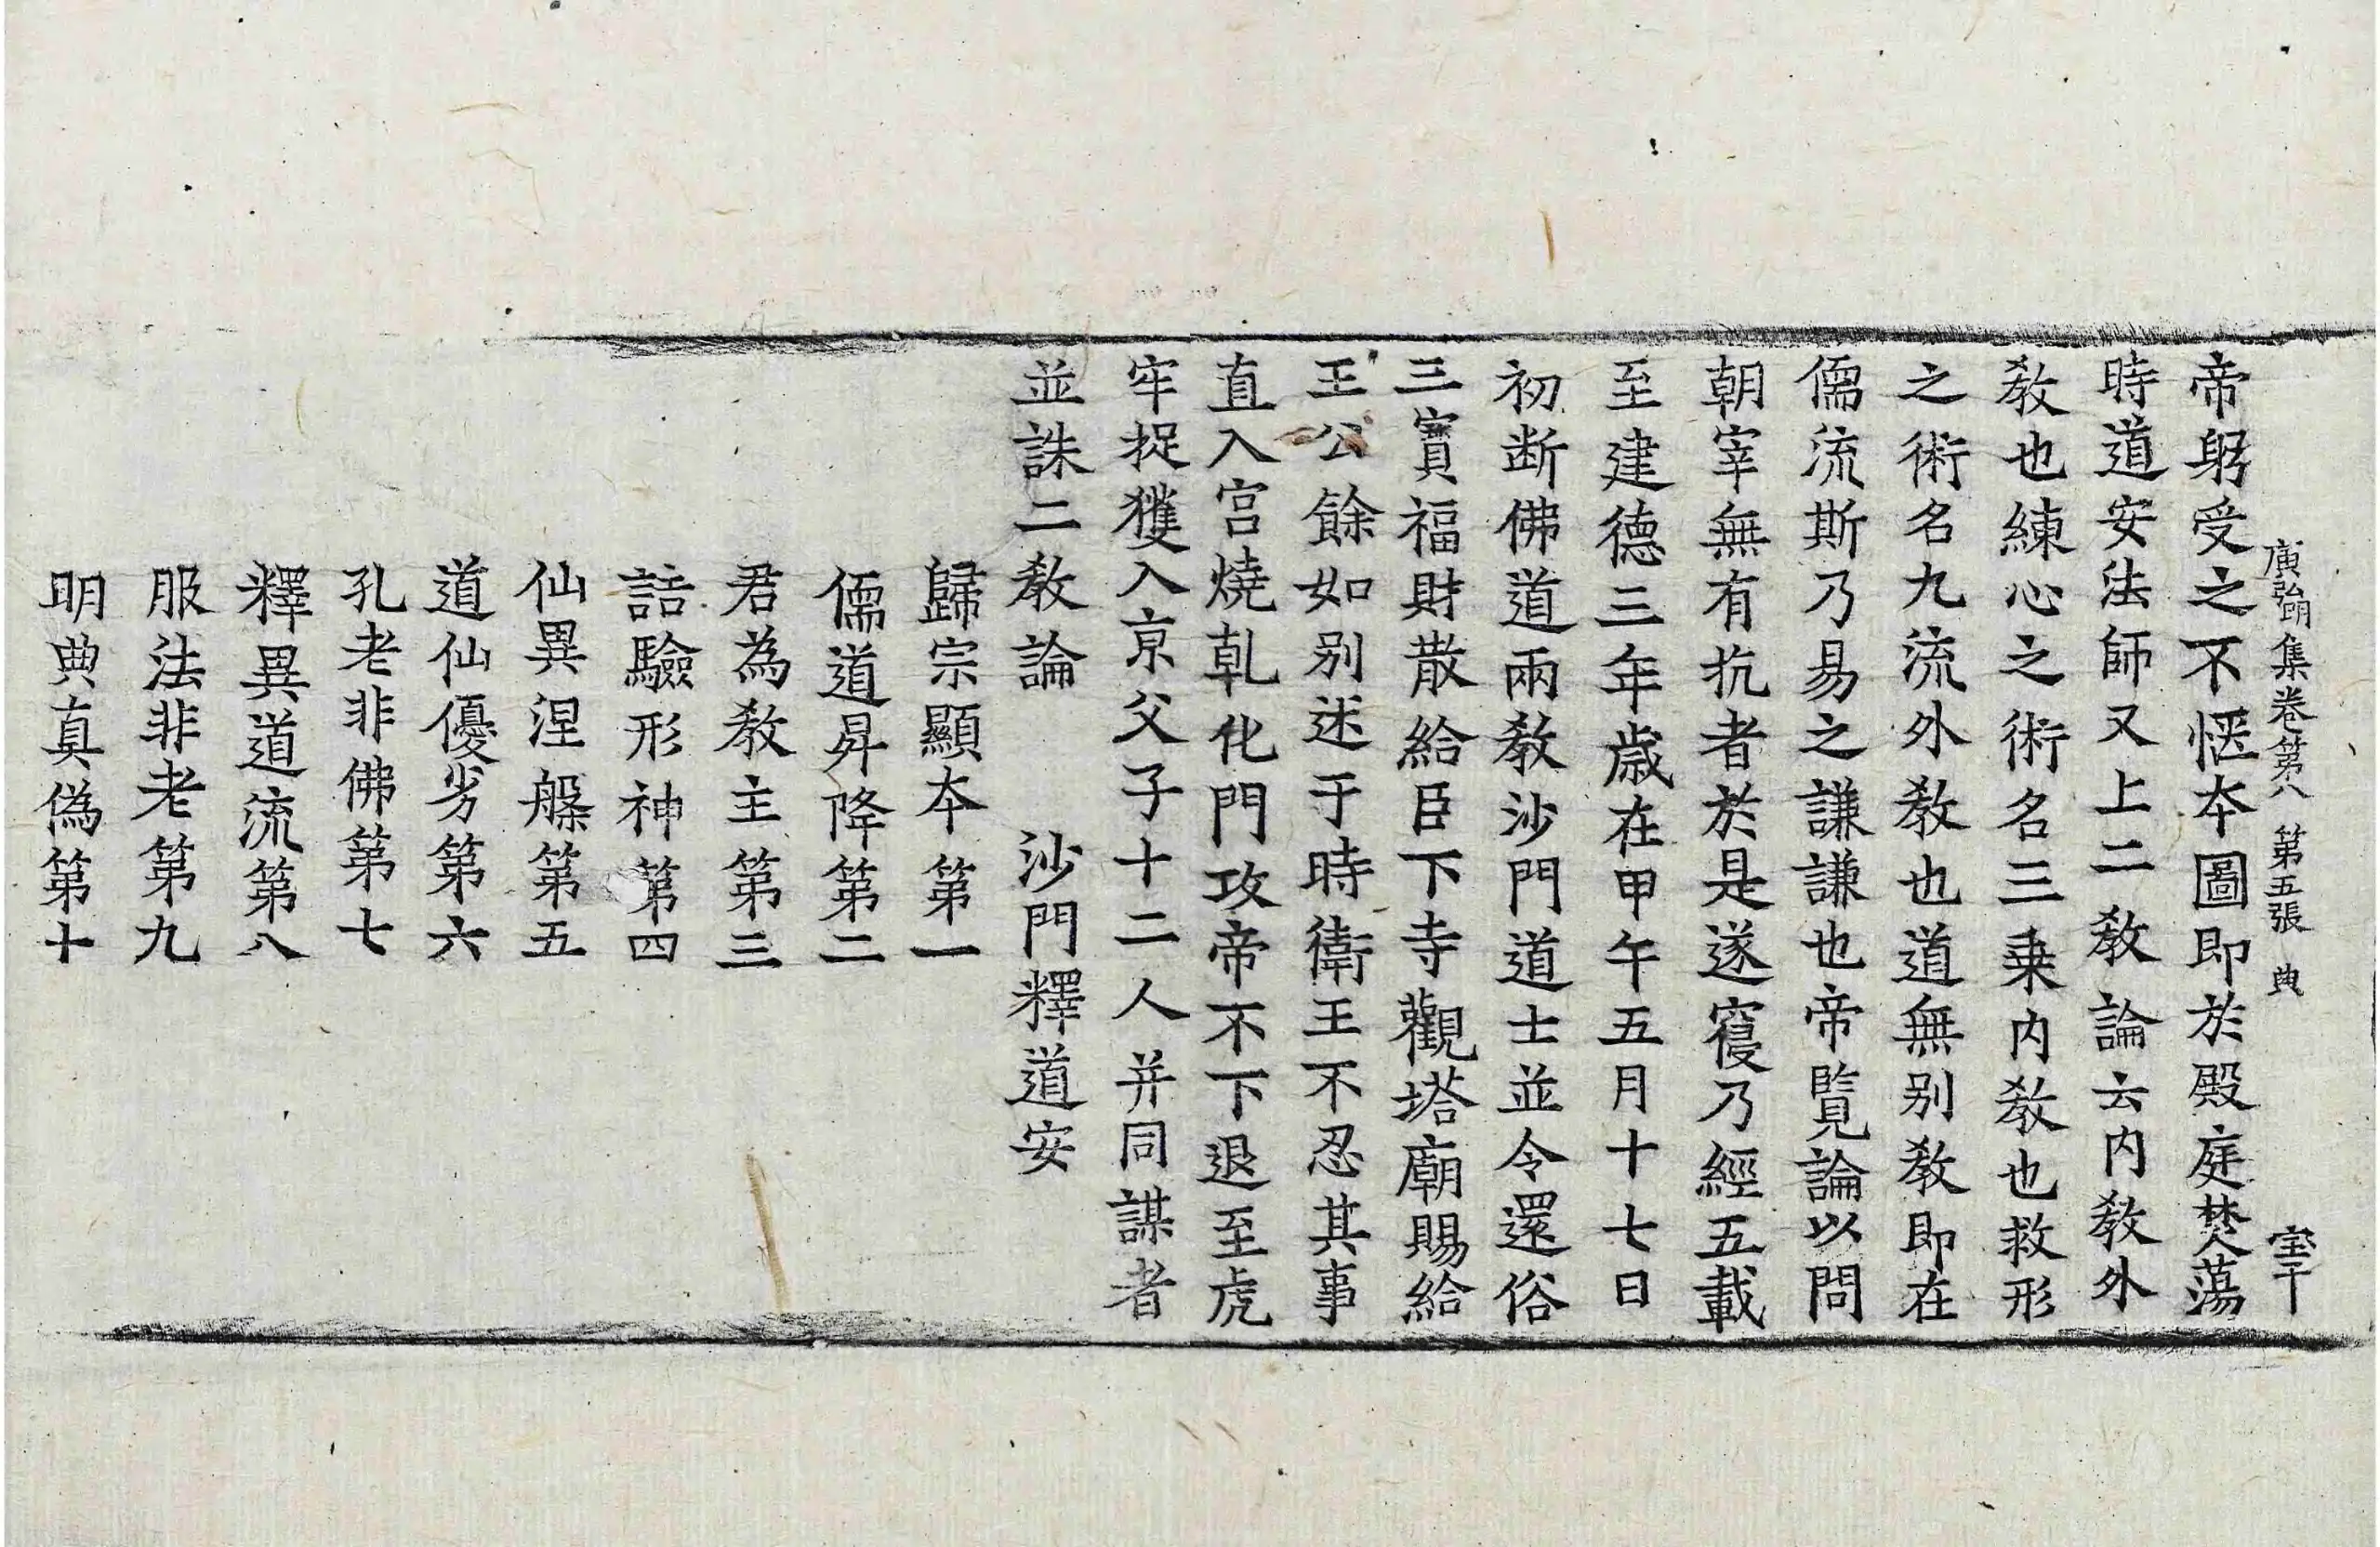 廣弘明集卷第八 第五張 典 宝千
帝躬受之不愜本圖即於殿庭焚蕩
時道安法師又上二教論云内教外
教也練心之術名三乗内教也救形
之術名九流外教也道無别教即在
儒流斯乃易之謙謙也帝覧論以問
朝宰無有抗者於是遂寑乃經五載
至建德三年歳在甲午五月十七日
初断佛道兩教沙門道士並令還俗
三寶福財散給臣下寺觀塔廟賜給
王公餘如别述于時衛王不忍其事
直入宫燒乹化門攻帝不下退至虎
牢捉獲入京父子十二人并同謀者
並誅二教論 沙門釋道安
歸宗顯本第一
儒道昇降第二
君為教主第三
詰驗形神第四
仙異涅槃第五
道仙優劣第六
孔老非佛第七
釋異道流第八
服法非老第九
明典真偽第十